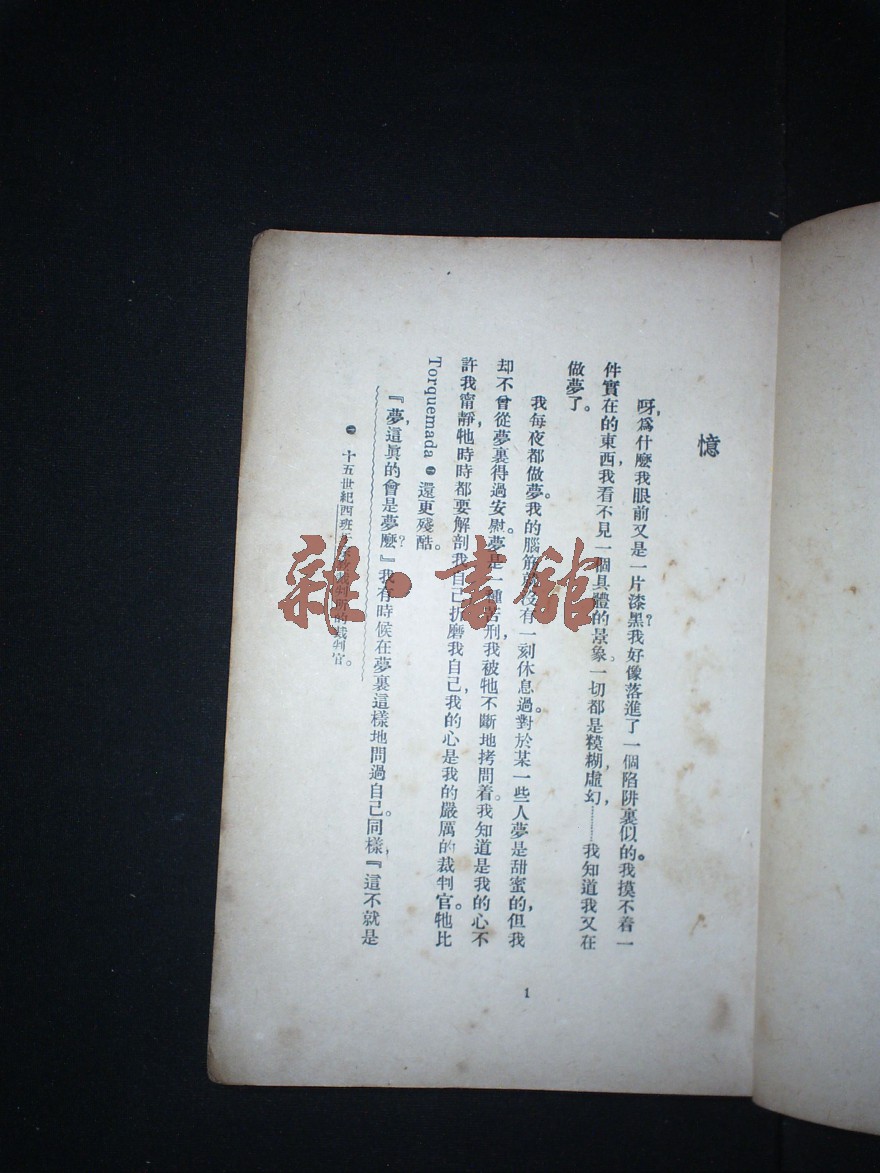 憶
呀，爲什麼我眼前又是一片漆黑？我好像落進了一個陷阱裏似的。我摸不着一
件實在的東西，我看不見一個具體的景象。一切都是糢糊，虛幻……我知道我又在
做夢了。
我每夜都做夢。我的腦筋就沒有一刻休息過。對於某一些人夢是甜蜜的，但我
却不曾從夢裏得過安慰。夢是一種苦刑，我被牠不斷地拷問着。我知道是我的心不
許我甯靜，牠時時都要解剖我自己，折磨我自己，我的心是我的嚴厲的裁判官。牠比
Torquemada ㊀ 還更殘酷。
『夢，這眞的會是夢麼？』我有時候在夢裏這樣地問過自己。同樣，『這不就是
㊀ 十五世紀西班 判所的裁判官。
1
雜·書館